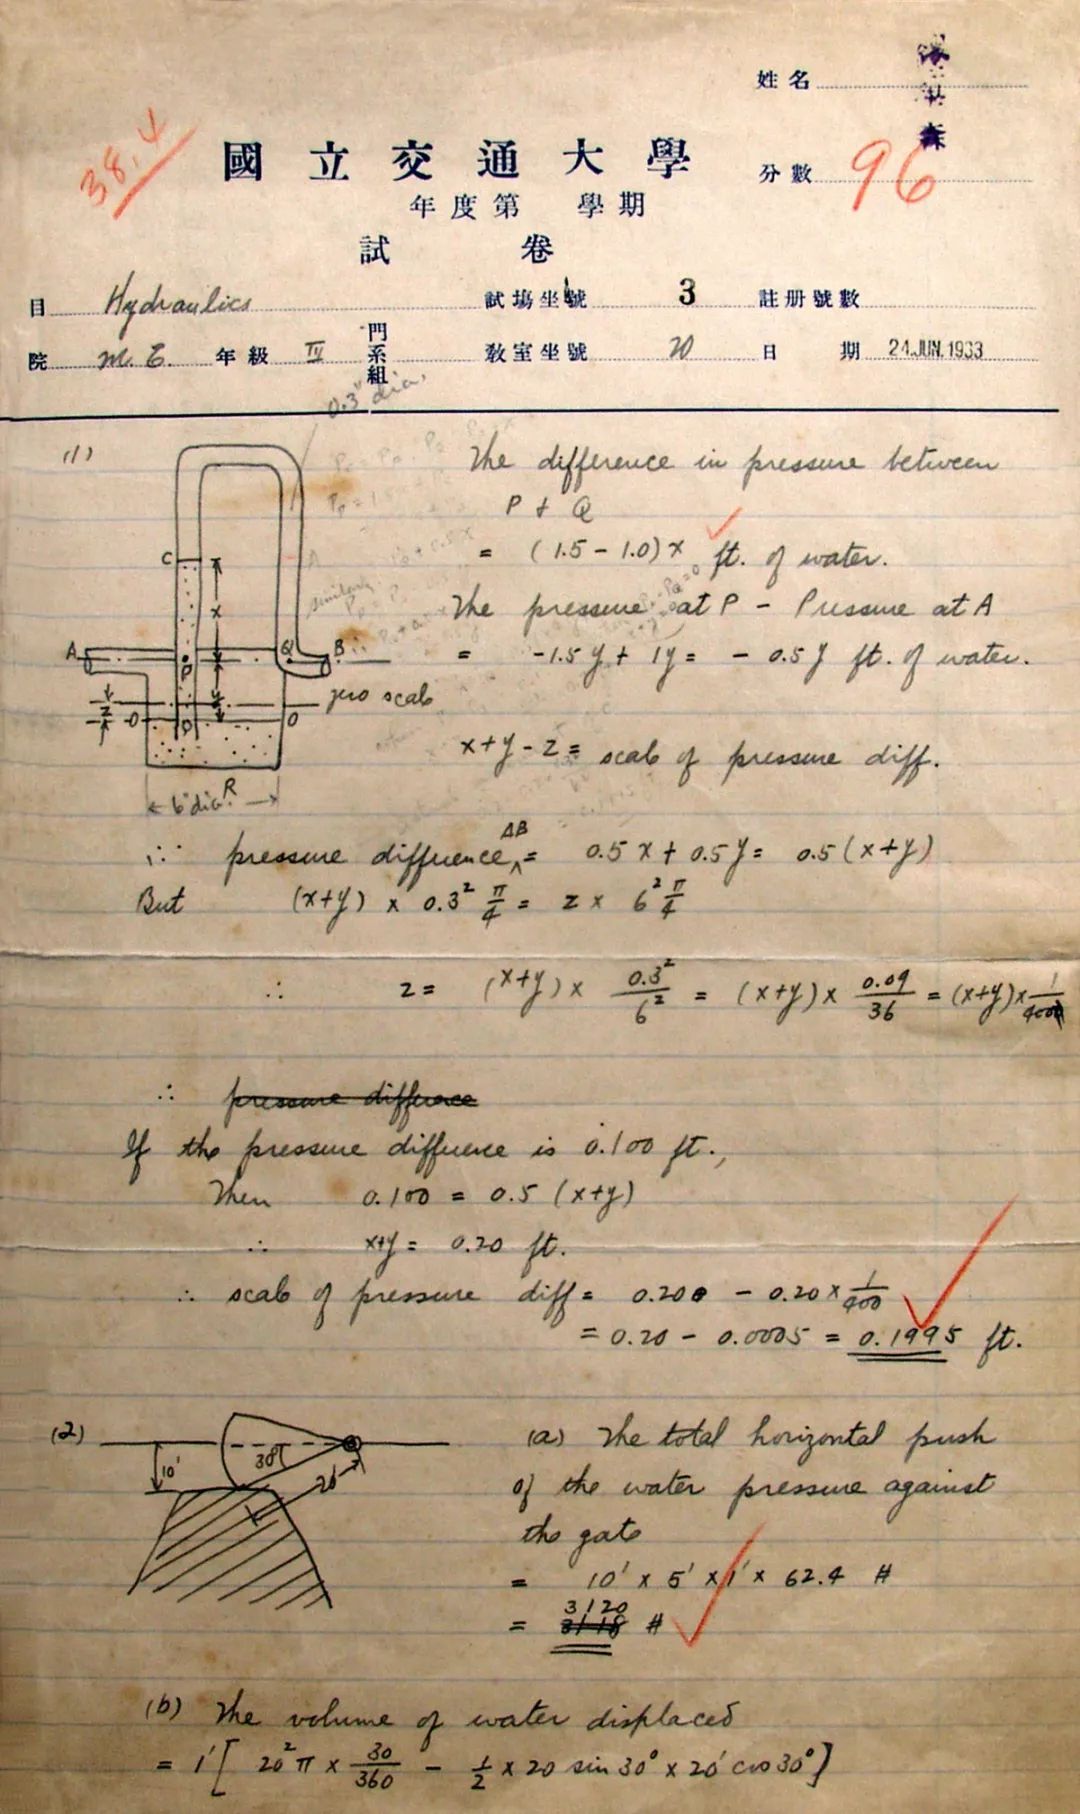 姓名
38.4
國立交通大學
分數 96
年度第 學期
試卷
目 Hydraulics 試場坐號 3 註册號數
院 M. E. 年級 IV 門系組 教室坐號 20 日期 24 JUN. 1933
0.3" dia.
(1)
The difference in pressure between
P + Q
= (1.5 - 1.0) x ft. of water.
C
x
The pressure at P - Pressure at A
A P Q B
= -1.5 y + 1y = - 0.5 y ft. of water.
zero scale
z O y O
x + y - z = scale of pressure diff.
6" dia. R
∴ pressure difference AB = 0.5 x + 0.5 y = 0.5 (x+y)
But (x+y) x 0.3² π/4 = z x 6² π/4
∴ z = (x+y) x 0.3²/6² = (x+y) x 0.09/36 = (x+y) x 1/400
∴ pressure difference
If the pressure difference is 0.100 ft.,
Then 0.100 = 0.5 (x+y)
∴ x+y = 0.20 ft.
∴ scale of pressure diff = 0.200 - 0.20 x 1/400
= 0.20 - 0.0005 = 0.1995 ft.
(2)
10' 30° 20'
(a) The total horizontal push
of the water pressure against
the gate
= 10' x 5' x 1' x 62.4 #
= 3120 #
(b) The volume of water displaced
= 1' [ 20² π x 30/360 - 1/2 x 20 sin 30° x 20' cos 30° ]